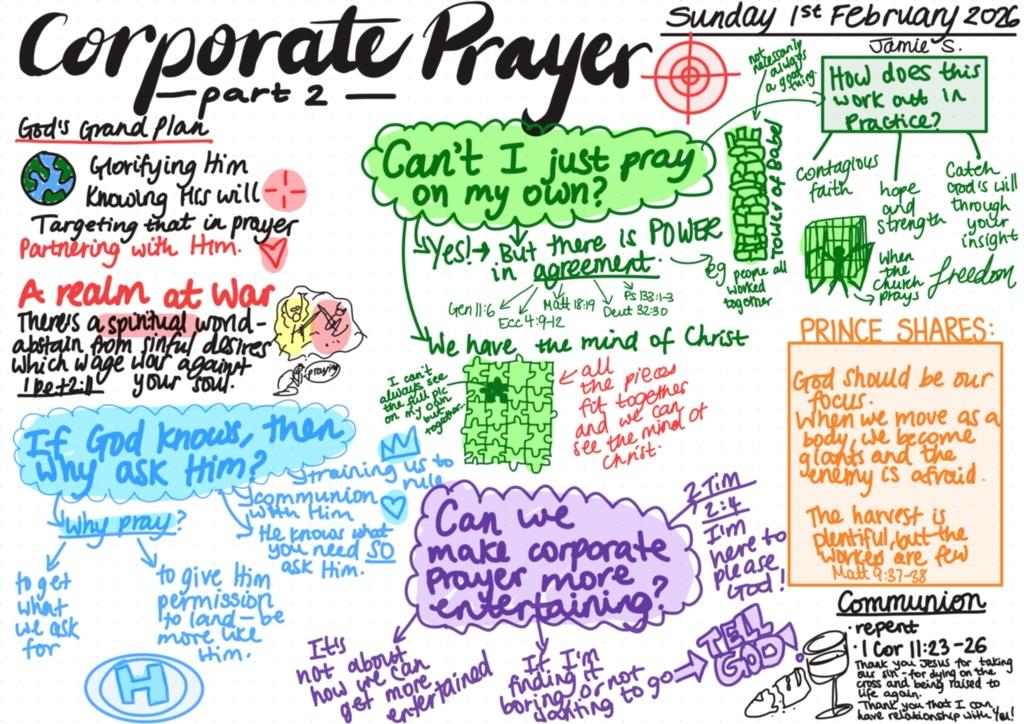 Corporate Prayer
— part 2 —
Sunday 1st February 2026
Jamie S.
God's Grand Plan
Glorifying Him
Knowing His will
Targeting that in prayer
Partnering with Him.
A realm at war
There's a spiritual world -
abstain from sinful desires
which wage war against
your soul.
1 Pet 2:11
praying
If God knows, then
why ask Him?
Why pray?
to get
what
we ask
for
to give Him
permission
to land - be
more like
Him.
H
training us to
rule
communion
with Him
He knows what
you need SO
ask Him.
Can't I just pray
on my own?
Yes! → But there is POWER
in agreement.
Gen 11:6
Ecc 4:9-12
Matt 18:19
Deut 32:30
Ps 133:1-3
eg people all
worked
together
Tower of Babel
not
necessarily
always
a good
thing.
We have the mind of Christ
I can't
always see
the full pic
on my own
but
together..
all
the pieces
fit together
and we can
see the mind of
Christ.
How does this
work out in
Practice?
contagious
faith
hope
and
strength
Catch
God's will
through
your
insight
When
the
church
prays
freedom
PRINCE SHARES:
God should be our
focus.
When we move as a
body, we become
giants and the
enemy is afraid.
The harvest is
plentiful, but the
worked are few
Matt 9:37-38
Can we
make corporate
prayer more
entertaining?
2 Tim
2:4
I'm
here to
please
God!
It's
not about
how we can
get more
entertained
If I'm
finding it
boring or not
wanting to go
TELL
GOD
Communion
• repent
• 1 Cor 11:23-26
Thank you Jesus for taking
our sin - for dying on the
cross and being raised to
life again.
Thank you that I can
have relationship with You!